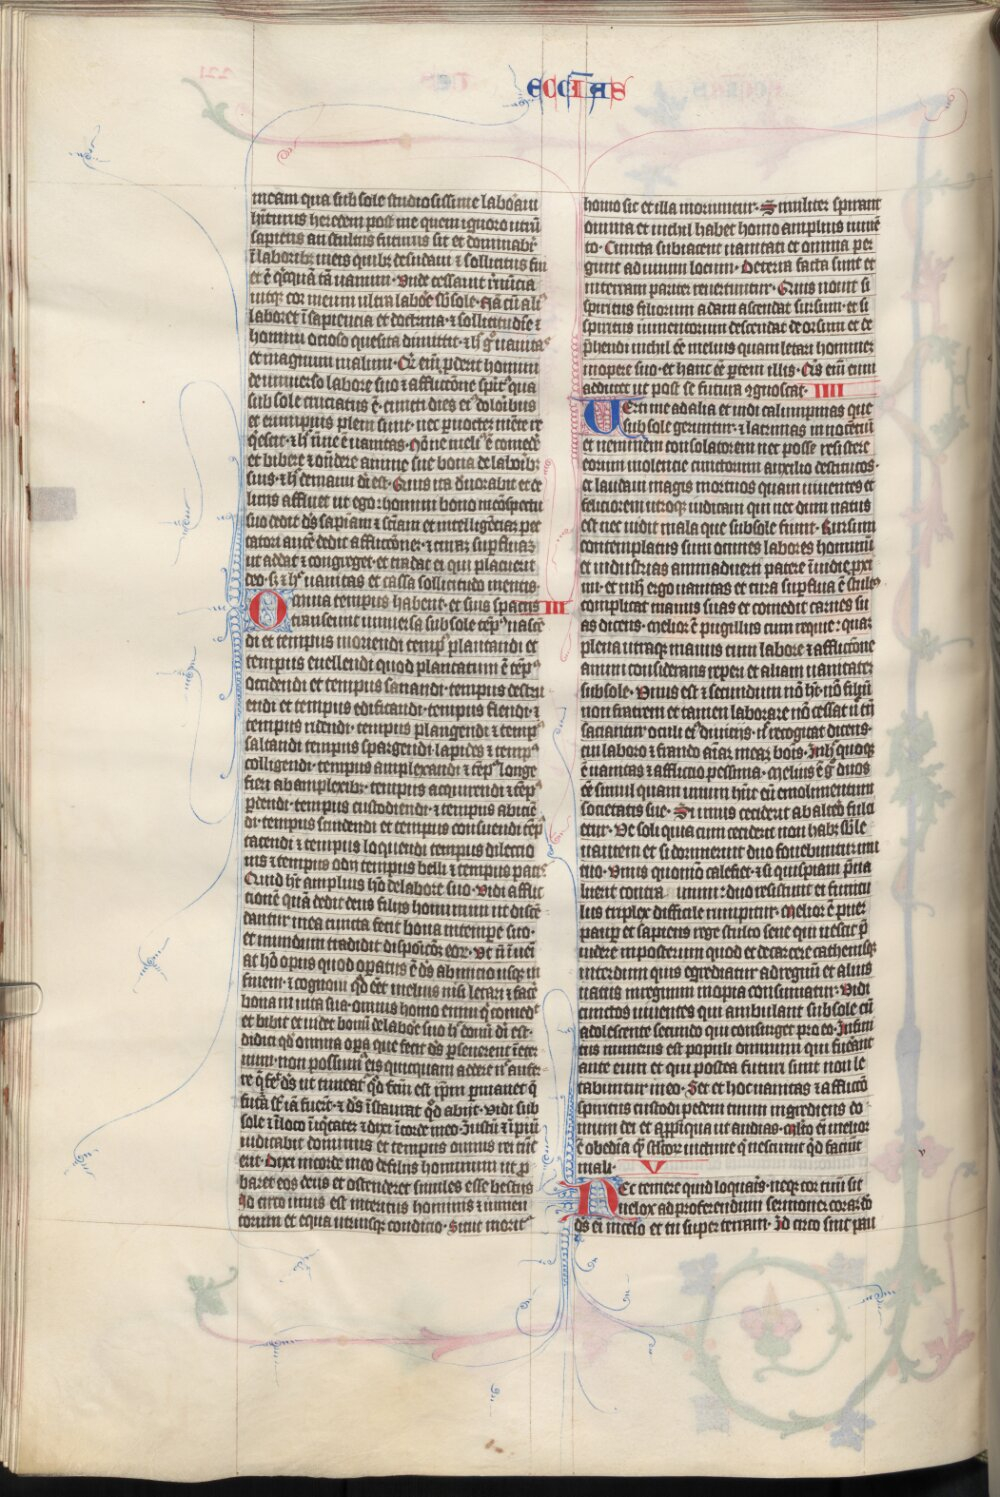 eccl̄as
meam qua sub sole studiosissime laboraui
hiturus heredem post me quem ignoro utrū
sapiens an stultus futurus sit et dominabit̄
ī laborib; meis quib; desudaui ⁊ sollicitus fui
et ē q̄cquā tā uanum. Vnde cessauit r̄nūcia
uitq; cor meum ultra laboē s̄b sole. Nā cū aliꝰ
laboret ī sapiencia et doctrina ⁊ sollicitudīe ⁊
homini ocioso quesita dimittit. ⁊ h̄ g̊ uanitas
et magnum malum. Qd̄ eni p̄derit homini
de uniuerso labore suo ⁊ afflictōne spirit̄ qua
sub sole cruciatus ē. cuncti dies eiꝰ doloribus
et erumpnis pleni sunt. nec per noctē mēte re
q̄escit. ⁊ h̄ nn̄e ē uanitas. Nōne meliꝰ ē comedē
et bibere ⁊ ondere anime sue bona de laborib;
suis. ⁊ h̄ de manu dī est. Quis ita duorabit et de
liciis affluet ut ego. homini bono in cōspectu
suo dedit dṡ sapiām ⁊ sciām et intelligēciā; pec
catori autē dedit afflictōnē. ⁊ curā; suꝑfluā;
ut addat ⁊ congreget. et tradat ei qui placuerit
deo. S; ⁊ h̄ uanitas et cassa sollicitudo mentis.
Omnia tempus habent. et suis spaciis III
transeunt uniuersa sub sole tēpꝰ nascē
di et tempus moriendi tempꝰ plantandi et
tempus euellendi quod plantatum ē tēpꝰ
occidendi et tempus sanandi. tempus destru
endi et tempus edificandi. tempus flendi. ⁊
tempus ridendi. tempus plangendi ⁊ tempꝰ
saltandi tempus spargendi lapides ⁊ tempꝰ
colligendi. tempus amplexandi ⁊ tēpꝰ longe
fieri ab amplexib;. tempus acquirendi ⁊ tēpꝰ
ꝑdendi. tempus custodiendi. ⁊ tempus abiciē
di. tempus scindendi et tempus consuendi tēpꝰ
tacendi ⁊ tempus loquendi tempus dilectio
nis ⁊ tempus odii tempus belli ⁊ tempus pacis.
Quid h̄t amplius hō de labore suo. Vidi afflic
cionē quā dedit deus filiis hominum ut distē
dantur in ea cuncta fecit bona in tempe suo.
et mundum tradidit disputōni eor;. Vt ñ īueni
at hō opus quod opatus ē dṡ ab inicio usq; in
finem. ⁊ cognoui qd̄ nō eēt melius nisi letari ⁊ facē
bona in uita sua. omnis homo enim q̄ comedꝰ
et bibit et uidet bonū de laboe suo h̄ donū dī est.
didici qd̄ omnia opa que fecit dṡ ꝑseuerent īeter
num. non possumꝰ eis quicquam addere nꝰ aufer
re q̄ fecꝰ dṡ ut timeatꝰ. qd̄ fcm̄ est ip̄m ꝑmanet q̄
futā sꝰ iā fuerꝰ. ⁊ dṡ īstaurat qd̄ abiit. Vidi sub
sole ī loco iudicii īpietatē ⁊ dixi ī corde meo. Iustū ⁊ īpiū
iudicabit dominus et tempus omnis rei tūc
erit. Dixi in corde meo de filiis hominum ut ꝓ
baret eos deus et ostenderet similes esse bestiis
Id circo unus est interitus hominis ⁊ iumen
torum et equa utriusq; condicio. Sicut moritꝰ
homo sic et illa moriuntur. Similiter spirant
omnia et nichil habet homo amplius iumē
to. Cuncta subiacent uanitati et omnia per
gunt ad unum locum. De terra facta sunt et
in terram pariter reuertuntur. Quis nouit si
spiritus filiorum adam ascendat sursum. et si
spiritus iumentorum descendat deorsum et de
p̄hendi nichil eē melius quam letari hominē;
in opere suo. et hanc eē ꝑtem illis. Qis enī eum
adducet ut post se futura 9gnoscat. IIII
Verti me ad alia et uidi calumpnias que
sub sole geruntur. ⁊ lacrimas innocentū
et neminem consolatorem nec posse resistere
eorum uiolencie cunctorum auxilio destitutos.
et laudaui magis mortuos quam uiuentes et
feliciorem utroq; iudicaui qui nec dum natus
est nec uidit mala que sub sole fiunt. Rursum
contemplatus sum omnes labores hominū
et industrias animaduerti patere īuidie ꝓxi
mi. et inh̄ ergo uanitas et cura suꝑflua ē stultꝰ
complicat manus suas et comedit carnes su
as dicens. Melior ē pugillus cum requie. quā;
plena utraq; manus cum labore ⁊ afflictione
animi considerans reperi et aliam uanitatē;
sub sole. Vnus est ⁊ secundum nō h̄t. nō filiū
non fratrem et tamen laborare nō cessat ñ ēn̄
saciantur oculi eiꝰ diuiciis. nꝰ recogitat dicens.
cui laboro ⁊ fraudo aīam meā; bōis. In h̄ quoq;
ē uanitas ⁊ afflictio pessima. Melius ē g̊ duos
eē simul quam unum h̄nt eñ emolimentum
societatis sue. Si unus ceciderit ab altero fulci
etur. Ve soli quia cum ceciderit non hab; sb̄le
uantem et si dormierint duo fouebuntur mu
tuo. Vnus quomō calefiet. ⁊ si quispiam p̄ua
luerit contra unum. duo resistunt ei funicu
lus triplex difficile rumpitur. Melior ē puer
pauꝑ et sapiens rege stulto sene qui nescit p̄
uidere in posterum quod et de carcere cathenisq;
interdum quis egrediatur ad regnū et alius
natus in regnum inopia consumatur. Vidi
cunctos uiuentes qui ambulant sub sole cū
adolescente secundo qui consurget pro eo. Infini
tus numerus est populi omnium qui fuerant
ante eum et qui postea futuri sunt non le
tabuntur in eo. Set et hoc uanitas ⁊ afflictō
spiritus custodi pedem tuum ingrediens do
mum dei et apꝓpiqua ut audias. Mlto eī melior
ē obedīa q̄ stl̄tor; uictime q̄ nesciunt qd̄ faciūt
mali. V
Nec temere quid loquaris. neq; cor tuū sit
uelox ad proferendum sermonē; cora; dō
dṡ eī in celo et tu super terram. Id circo sint pau